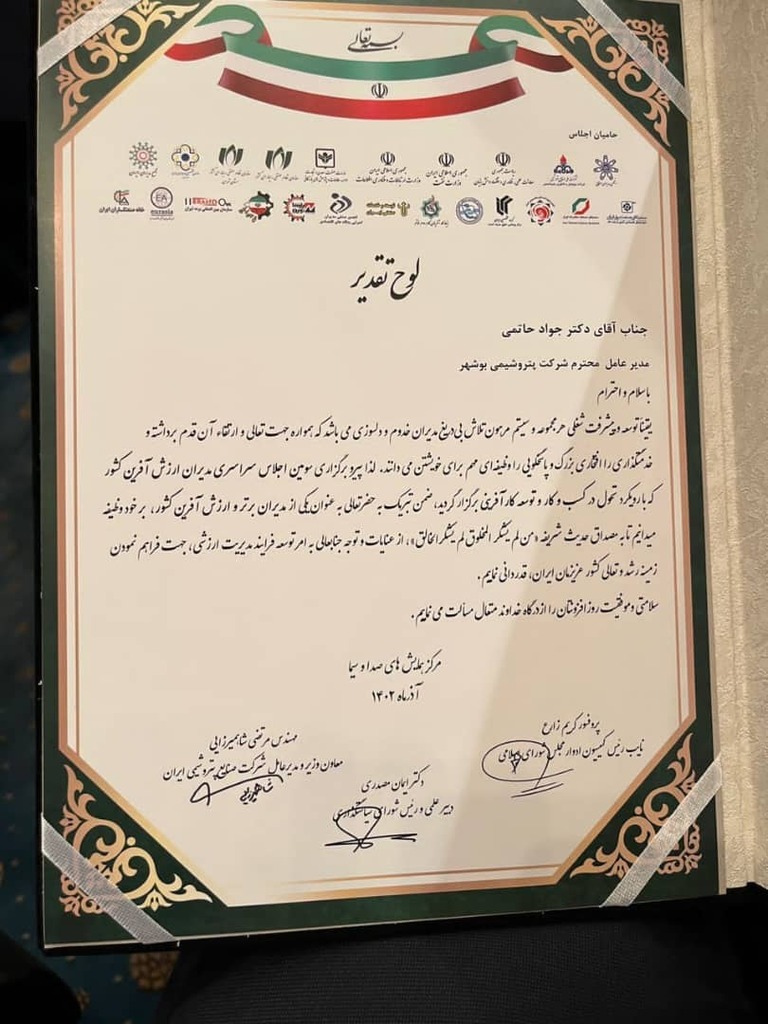 بسمه تعالی
حامیان اجلاس
ریاست جمهوری
جمهوری اسلامی ایران
جمهوری اسلامی ایران
وزارت نفت
وزارت ارتباطات و فناوری اطلاعات
خانه صنعتگران ایران
EA
eurasia
لوح تقدیر
جناب آقای دکتر جواد حاتمی
مدیر عامل محترم شرکت پتروشیمی بوشهر
با سلام و احترام
یقیناً توسعه و پیشرفت شغلی هر مجموعه و سیستم مرهون تلاش بی‌دریغ مدیران خدوم و دلسوزی می باشد که همواره جهت تعالی و ارتقاء آن قدم برداشته و
خدمتگذاری را افتخاری بزرگ و پاسخگویی را وظیفه‌ای مهم برای خویشتن می دانند. لذا پیرو برگزاری سومین اجلاس سراسری مدیران ارزش آفرین کشور
که با رویکرد تحول در کسب و کار و توسعه کارآفرینی برگزار گردید، ضمن تبریک به حضرتعالی به عنوان یکی از مدیران برتر و ارزش آفرین کشور، بر خود وظیفه
میدانیم تا به مصداق حدیث شریفه «من لم یشکر المخلوق لم یشکر الخالق»، از عنایات و توجه جنابعالی به امر توسعه فرایند مدیریت ارزشی، جهت فراهم نمودن
زمینه رشد و تعالی کشور عزیزمان ایران، قدردانی نماییم.
سلامتی و موفقیت روزافزونتان را از درگاه خداوند متعال مسألت می نماییم.
مرکز همایش های صدا و سیما
آذرماه ۱۴۰۲
پروفسور کریم زارع
نایب رئیس کمیسیون ادوار مجلس شورای اسلامی
دکتر ایمان مصدری
دبیر علمی و رئیس شورای سیاستگذاری
مهندس مرتضی شاهمیرزایی
معاون وزیر و مدیرعامل شرکت صنایع پتروشیمی ایران